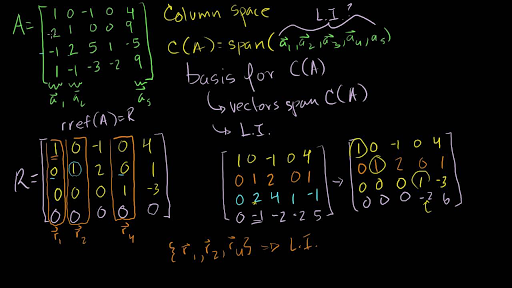 A = [ 1 0 -1 0 4
2 1 0 0 9
-1 2 5 1 -5
1 -1 -3 -2 9 ]
a⃗₁ a⃗₂ a⃗₅
Column space
L.I.?
C(A) = span(a⃗₁, a⃗₂, a⃗₃, a⃗₄, a⃗₅)
basis for C(A)
↳ vectors span C(A)
↳ L.I.
rref(A) = R
R = [ 1 0 -1 0 4
0 1 2 0 1
0 0 0 1 -3
0 0 0 0 0 ]
r⃗₁ r⃗₂ r⃗₄
[ 1 0 -1 0 4
0 1 2 0 1
0 2 4 1 -1
0 -1 -2 -2 5 ] →
[ 1 0 -1 0 4
0 1 2 0 1
0 0 0 1 -3
0 0 0 -2 6 ]
{r⃗₁, r⃗₂, r⃗₄} ⇒ L.I.